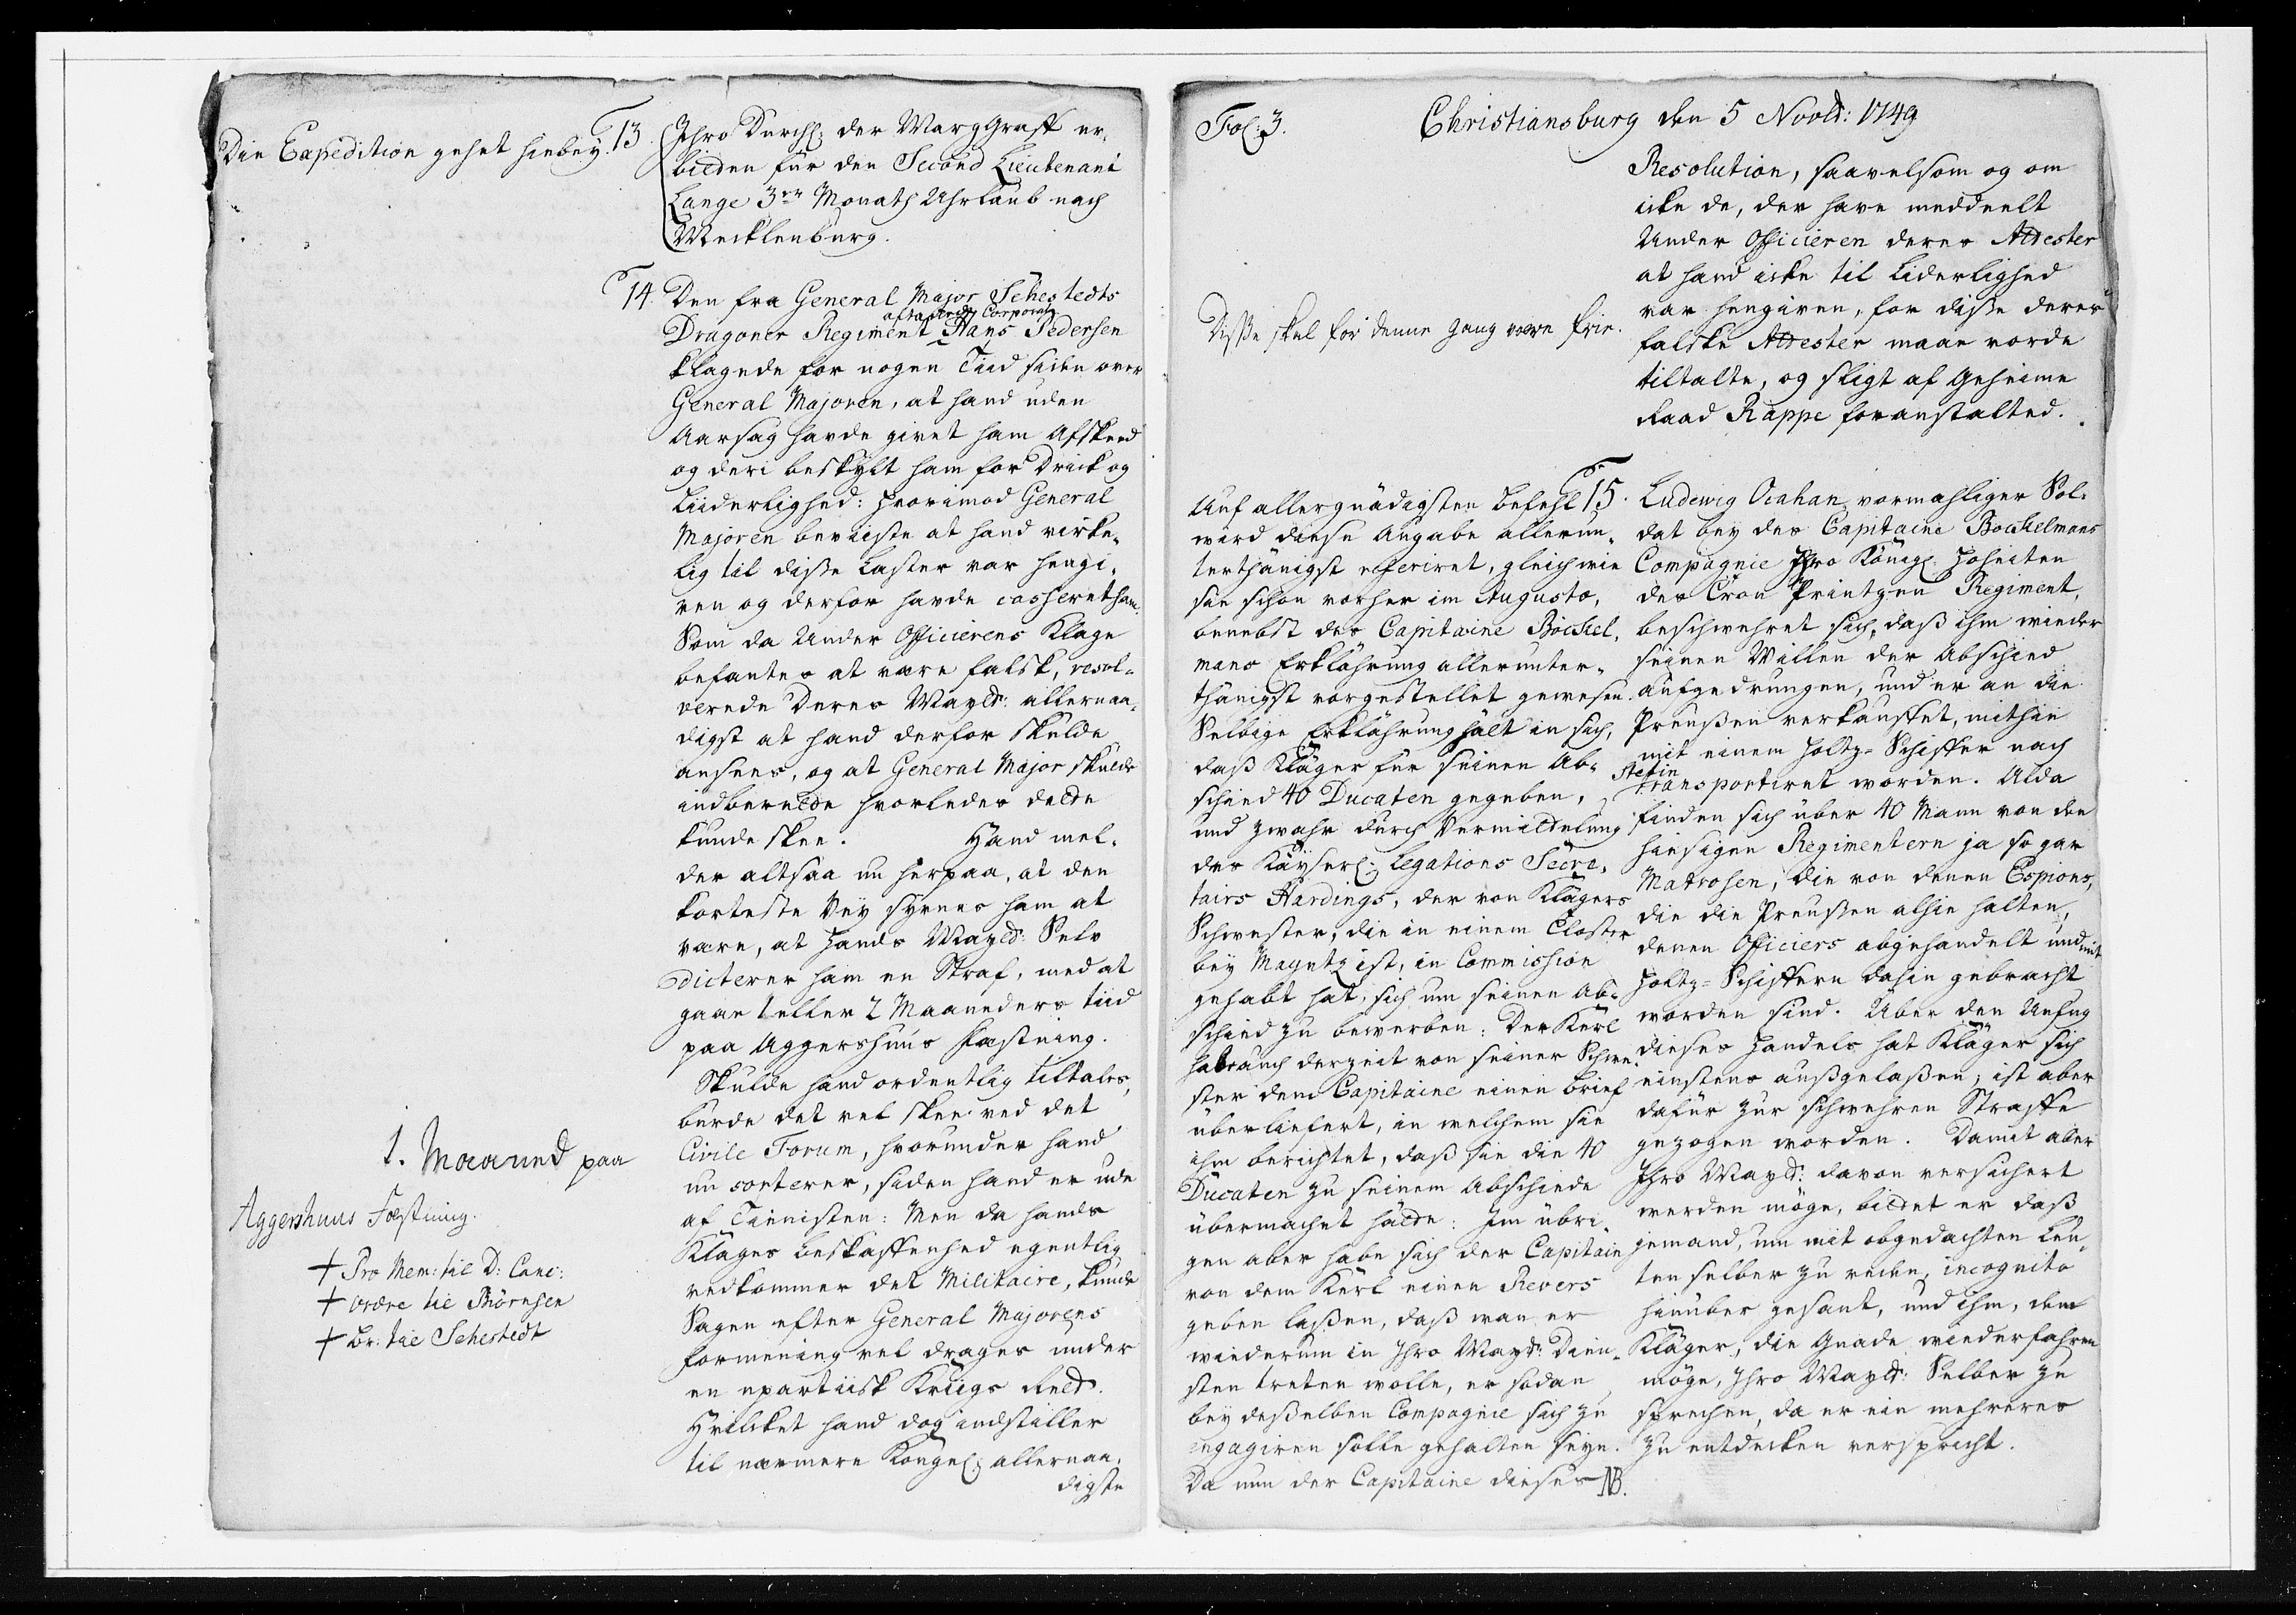 Die Expedition gehet hiebey.
13.
Ihro Durchl: der MargGraff er¬
bitten für den Second Lieutenant
Lange 3en Monath Uhrlaub nach
Mecklenburg.
14.
Den fra General Major Sehestedts
aftakkede Corporal
Dragoner Regiment Hans Pedersen
klagede for nogen Tiid siden over
General Majoren, at hand uden
Aarsag havde givet ham Afskeed
og deri beskylt ham for Drick og
Liiderlighed: Hvorimod General
Majoren beviiste at hand virke¬
lig til disse Laster var hengi¬
ven og derfor havde casseret ham.
Som da Under Officierens Klage
befantes at være falsk, resol¬
verede Deres Mayts: allernaa¬
digst at hand derfor skulde
ansees, og at General Major skulde
indberette hvorledes dette
kunde skee. Hand mel¬
der altsaa nu herpaa, at den
korteste Vey synes ham at
være, at Hands Mayts: Selv
dicterer ham en Straf, med at
gaae 1 eller 2 Maaneders tiid
paa Aggershuus Fæstning.
Skulde hand ordentlig tiltales,
burde det vel skee ved det
Civile Forum, hvorunder hand
nu sorterer, siden hand er ude
af Tienisten: Men da hands
Klages beskaffenhed egentlig
vedkommer det Militaire, kunde
Sagen efter General Majorens
formening vel drages under
en upartiisk Kriigs Rett.
Hvilcket hand dog indstiller
til nærmere Kongel: allernaa¬
digste
1. Maaned paa
Aggershuus Fæstning.
+ Pro Mem: til D: Canc:
+ Ordre til Börnsen
+ Br: til Sehestedt
Fol: 3.
Christiansburg den 5 Novbr: 1749
Resolution, saavelsom og om
icke de, der have meddeelt
Under Officieren deres Attester
at hand icke til Liderlighed
var hengiven, for disse deres
falske Attester maae vorde
tiltalte, og sligt af Geheime
Raad Rappe foranstalted.
Disse skal for denne gang være frie.
Auf allergnädigsten Befehl
wird diese Angabe allerun¬
terthänigst referiret, gleichwie
sie schon vorher im Augusto,
benebst des Capitaine Böckel¬
mans Erklährung allerunter¬
thänigst vorgestellet gewesen.
Selbige Erklährung hält in sich,
daß Kläger für seinen Ab¬
schied 40 Ducaten gegeben,
und zwahr durch Vermittelung
des Käyserl: Legations Secre¬
tairs Hardings, der von Klägers
Schwester, die in einem Closter
bey Mayntz ist, in Commission
gehabt hat, sich um seinen Ab¬
schied zu bewerben: Der Kerl
habe auch derzeit von seiner Schwe¬
ster dem Capitaine einen Brief
überliefert, in welchem sie
ihm berichtet, daß sie die 40
Ducaten zu seinem Abschiede
übermachet hätte: Im übri¬
gen aber habe sich der Capitain
von dem Kerl einen Revers
geben laßen, daß wan er
wiederum in Ihro Mayts: Dien¬
sten treten wolle, er sodan
bey deßelben Compagnie sich zu
engagiren solle gehalten seyn.
Da nun der Capitaine dieses NB.
15.
Ludewig Ocahan vormahliger Sol¬
dat bey des Capitaine Bockelmans
Compagnie Ihro Königl: Hoheiten
des Cron Printzen Regiment,
beschwehret sich, daß ihm wieder
seinen Willen der Abschied
aufgedrungen, und er an die
Preußen verkauffet, mithin
mit einem Holtz-Schiffer nach
Stetin
transportiret worden. Alda
finden sich über 40 Mann von den
hiesigen Regimentern ja so gar
Matrosen, die von denen Espions,
die die Preußen alhie halten,
denen Officiers abgehandelt und mit
Holtz-Schiffern dahin gebracht
worden sind. Über den Unfug
dieses Handels hat Kläger sich
einstens außgelaßen, ist aber
dafür zur schwehren Straffe
gezogen worden. Damit aber
Ihro Mayts: davon versichert
werden möge, bittet er daß
jemand, um mit obgedachten Leu¬
ten selber zu reden, incognito
hinüber gesant, und ihm, dem
Kläger, die Gnade wiederfahren
möge, Ihro Mayts: Selber zu
sprechen, da er ein mehreres
zu entdecken verspricht.